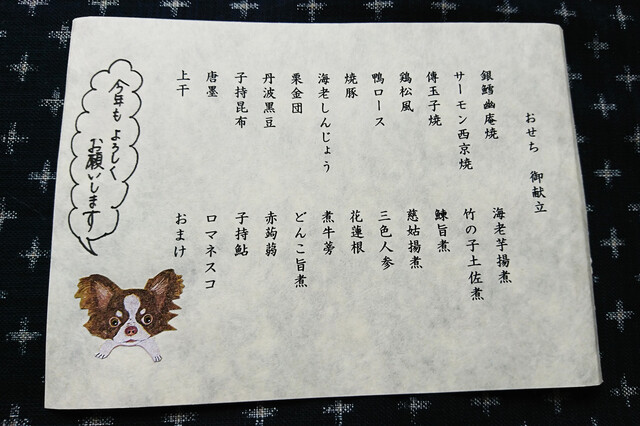 おせち 御献立
銀鱈幽庵焼
サーモン西京焼
傳玉子焼
鶏松風
鴨ロース
焼豚
海老しんじょう
栗金団
丹波黒豆
子持昆布
唐墨
上干
海老芋揚煮
竹の子土佐煮
鰊旨煮
慈姑揚煮
三色人参
花蓮根
煮牛蒡
どんこ旨煮
赤蒟蒻
子持鮎
ロマネスコ
おまけ
今年もよろしく
お願いします